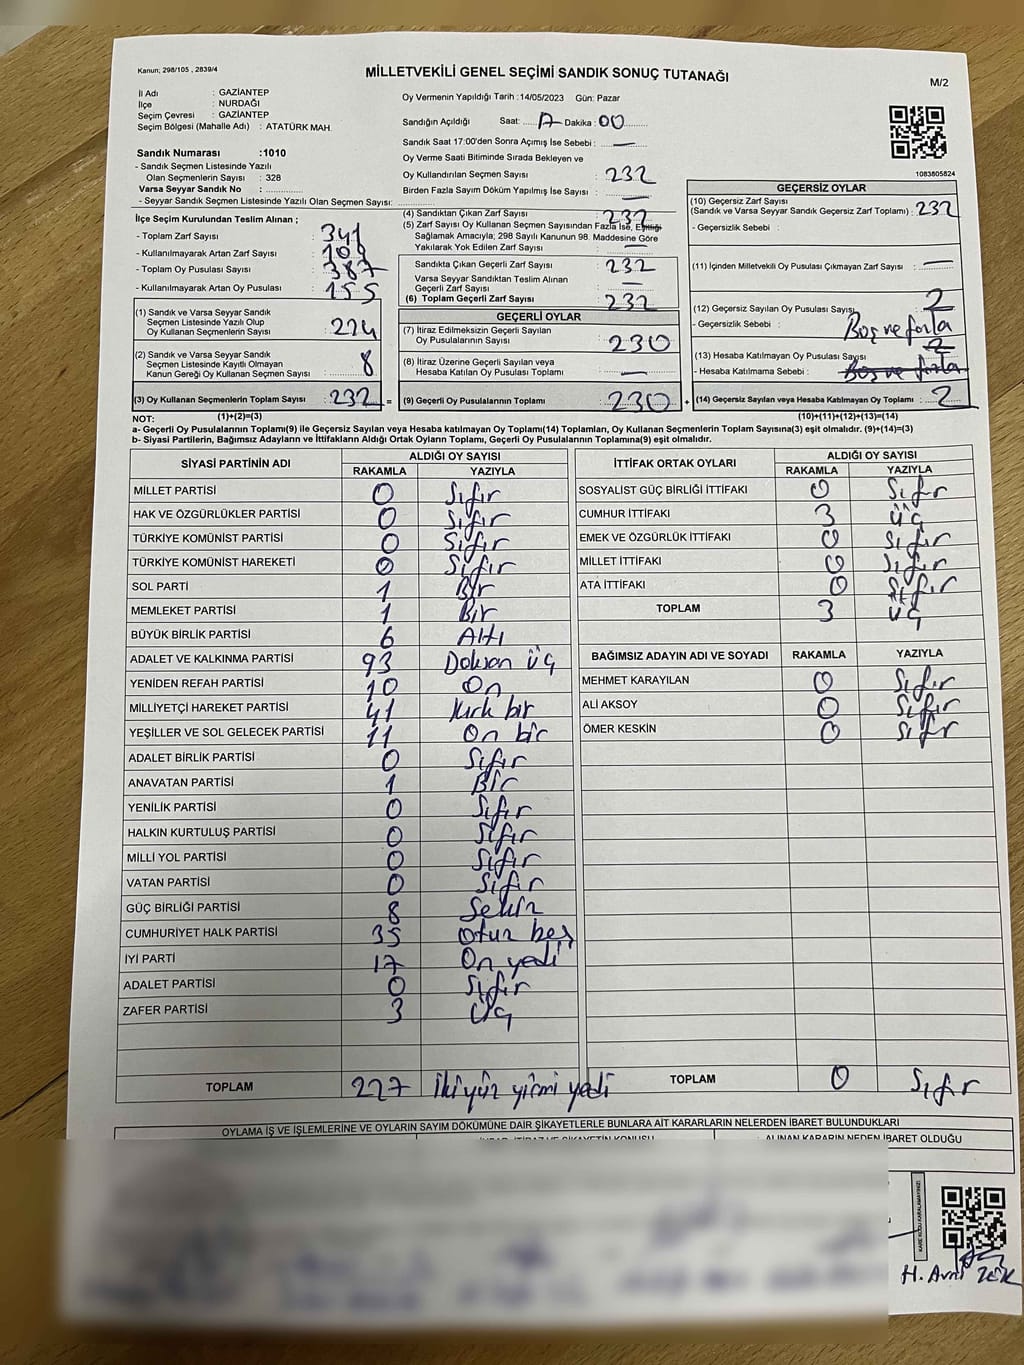 Kanun; 298/105 , 2839/4
MİLLETVEKİLİ GENEL SEÇİMİ SANDIK SONUÇ TUTANAĞI
M/2
İl Adı : GAZİANTEP
İlçe : NURDAĞI
Seçim Çevresi : GAZİANTEP
Seçim Bölgesi (Mahalle Adı) : ATATÜRK MAH.
Sandık Numarası :1010
- Sandık Seçmen Listesinde Yazılı
Olan Seçmenlerin Sayısı : 328
Varsa Seyyar Sandık No :
- Seyyar Sandık Seçmen Listesinde Yazılı Olan Seçmen Sayısı:
Oy Vermenin Yapıldığı Tarih :14/05/2023 Gün: Pazar
Sandığın Açıldığı Saat: Dakika : 00
Sandık Saat 17:00'den Sonra Açımış İse Sebebi : —
Oy Verme Saati Bitiminde Sırada Bekleyen ve
Oy Kullandırılan Seçmen Sayısı : 232
Birden Fazla Sayım Döküm Yapılmış İse Sayısı : —
1083805824
İlçe Seçim Kurulundan Teslim Alınan ;
- Toplam Zarf Sayısı : 341
- Kullanılmayarak Artan Zarf Sayısı : 109
- Toplam Oy Pusulası Sayısı : 387
- Kullanılmayarak Artan Oy Pusulası : 155
(1) Sandık ve Varsa Seyyar Sandık
Seçmen Listesinde Yazılı Olup
Oy Kullanan Seçmenlerin Sayısı : 224
(2) Sandık ve Varsa Seyyar Sandık
Seçmen Listesinde Kayıtlı Olmayan
Kanun Gereği Oy Kullanan Seçmen Sayısı : 8
(3) Oy Kullanan Seçmenlerin Toplam Sayısı : 232 =
(4) Sandıktan Çıkan Zarf Sayısı : 232
(5) Zarf Sayısı Oy Kullanan Seçmen Sayısından Fazla İse, Eşitliği
Sağlamak Amacıyla; 298 Sayılı Kanunun 98. Maddesine Göre
Yakılarak Yok Edilen Zarf Sayısı : —
Sandıkta Çıkan Geçerli Zarf Sayısı : 232
Varsa Seyyar Sandıktan Teslim Alınan
Geçerli Zarf Sayısı : —
(6) Toplam Geçerli Zarf Sayısı : 232
GEÇERLİ OYLAR
(7) İtiraz Edilmeksizin Geçerli Sayılan
Oy Pusulalarının Sayısı : 230
(8) İtiraz Üzerine Geçerli Sayılan veya
Hesaba Katılan Oy Pusulası Toplamı : —
(9) Geçerli Oy Pusulalarının Toplamı : 230 +
GEÇERSİZ OYLAR
(10) Geçersiz Zarf Sayısı
(Sandık ve Varsa Seyyar Sandık Geçersiz Zarf Toplamı) : 232
- Geçersizlik Sebebi :
(11) İçinden Milletvekili Oy Pusulası Çıkmayan Zarf Sayısı : —
(12) Geçersiz Sayılan Oy Pusulası Sayısı : 2
- Geçersizlik Sebebi : Boş ve fazla
(13) Hesaba Katılmayan Oy Pusulası Sayısı : 2
- Hesaba Katılmama Sebebi : Boş ve fazla
(14) Geçersiz Sayılan veya Hesaba Katılmayan Oy Toplamı : 2
NOT: (1)+(2)=(3) (10)+(11)+(12)+(13)=(14)
a- Geçerli Oy Pusulalarının Toplamı(9) ile Geçersiz Sayılan veya Hesaba katılmayan Oy Toplamı(14) Toplamları, Oy Kullanan Seçmenlerin Toplam Sayısına(3) eşit olmalıdır. (9)+(14)=(3)
b- Siyasi Partilerin, Bağımsız Adayların ve İttifakların Aldığı Ortak Oyların Toplamı, Geçerli Oy Pusulalarının Toplamına(9) eşit olmalıdır.
SİYASİ PARTİNİN ADI ALDIĞI OY SAYISI
RAKAMLA YAZIYLA
MİLLET PARTİSİ 0 Sıfır
HAK VE ÖZGÜRLÜKLER PARTİSİ 0 Sıfır
TÜRKİYE KOMÜNİST PARTİSİ 0 Sıfır
TÜRKİYE KOMÜNİST HAREKETİ 0 Sıfır
SOL PARTİ 1 Bir
MEMLEKET PARTİSİ 1 Bir
BÜYÜK BİRLİK PARTİSİ 6 Altı
ADALET VE KALKINMA PARTİSİ 93 Doksan üç
YENİDEN REFAH PARTİSİ 10 On
MİLLİYETÇİ HAREKET PARTİSİ 41 Kırk bir
YEŞİLLER VE SOL GELECEK PARTİSİ 11 On bir
ADALET BİRLİK PARTİSİ 0 Sıfır
ANAVATAN PARTİSİ 1 Bir
YENİLİK PARTİSİ 0 Sıfır
HALKIN KURTULUŞ PARTİSİ 0 Sıfır
MİLLİ YOL PARTİSİ 0 Sıfır
VATAN PARTİSİ 0 Sıfır
GÜÇ BİRLİĞİ PARTİSİ 8 Sekiz
CUMHURİYET HALK PARTİSİ 35 Otuz beş
İYİ PARTİ 17 On yedi
ADALET PARTİSİ 0 Sıfır
ZAFER PARTİSİ 3 Üç
TOPLAM 227 İki yüz yirmi yedi
İTTİFAK ORTAK OYLARI ALDIĞI OY SAYISI
RAKAMLA YAZIYLA
SOSYALİST GÜÇ BİRLİĞİ İTTİFAKI 0 Sıfır
CUMHUR İTTİFAKI 3 Üç
EMEK VE ÖZGÜRLÜK İTTİFAKI 0 Sıfır
MİLLET İTTİFAKI 0 Sıfır
ATA İTTİFAKI 0 Sıfır
TOPLAM 3 Üç
BAĞIMSIZ ADAYIN ADI VE SOYADI RAKAMLA YAZIYLA
MEHMET KARAYILAN 0 Sıfır
ALİ AKSOY 0 Sıfır
ÖMER KESKİN 0 Sıfır
TOPLAM 0 Sıfır
OYLAMA İŞ VE İŞLEMLERİNE VE OYLARIN SAYIM DÖKÜMÜNE DAİR ŞİKAYETLERLE BUNLARA AİT KARARLARIN NELERDEN İBARET BULUNDUKLARI
ALINAN KARARIN NEDEN İBARET OLDUĞU
KARE KODU KARALAMAYINIZ!
H. Avni